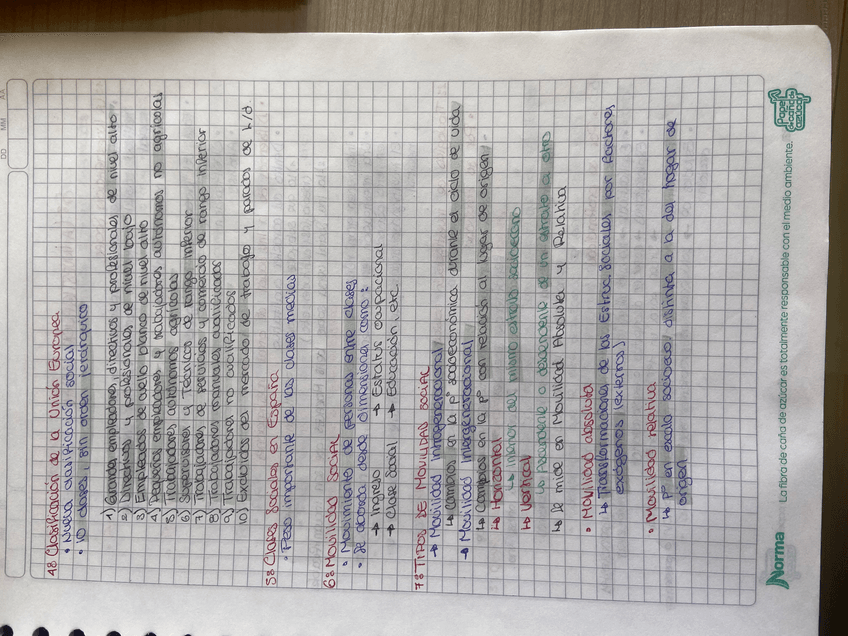 DD MM AA
48 Clasificación de la Unión Europea
• Nueva clasificación social
• 10 clases, sin orden jerárquico
1) Grandes empleadores, directivos y profesionales de nivel alto
2) Directivos y profesionales de nivel bajo
3) Empleados de cuello blanco de nivel alto
4) Pequeños empleadores y trabajadores autónomos no agrícolas
5) Trabajadores autónomos agrícolas
6) Supervisores y Técnicos de rango inferior
7) Trabajadores de servicios y comercio de rango inferior
8) Trabajadores manuales cualificados
9) Trabajadores no cualificados
10) Excluidos del mercado de trabajo y parados de l/d
58 Clases Sociales en España
• Peso importante de las clases medias
68 Movilidad Social
• Movimiento de personas entre clases
• Se aborda desde dimensiones como:
→ Ingreso → Estatus ocupacional
→ Clase Social → Educación, etc.
78 TIPOS DE MOVILIDAD SOCIAL
→ Movilidad intrageneracional
↳ Cambios en la pº socioeconómica durante el ciclo de vida
→ Movilidad intergeneracional
↳ Cambios en la pº con relación al lugar de origen
→ Horizontal
↳ Interior del mismo estrato socioecono
→ Vertical
↳ Ascendente o descendente de un estrato a otro
↳ Se mide en Movilidad Absoluta y Relativa
• Movilidad absoluta
↳ Transformaciones de las Estruc. sociales por factores
exógenos (externos)
• Movilidad relativa
↳ pº en escala socioeco. distinta a la del hogar de
origen
Norma
La fibra de caña de azúcar es totalmente responsable con el medio ambiente.
Papel de caña de azúcar